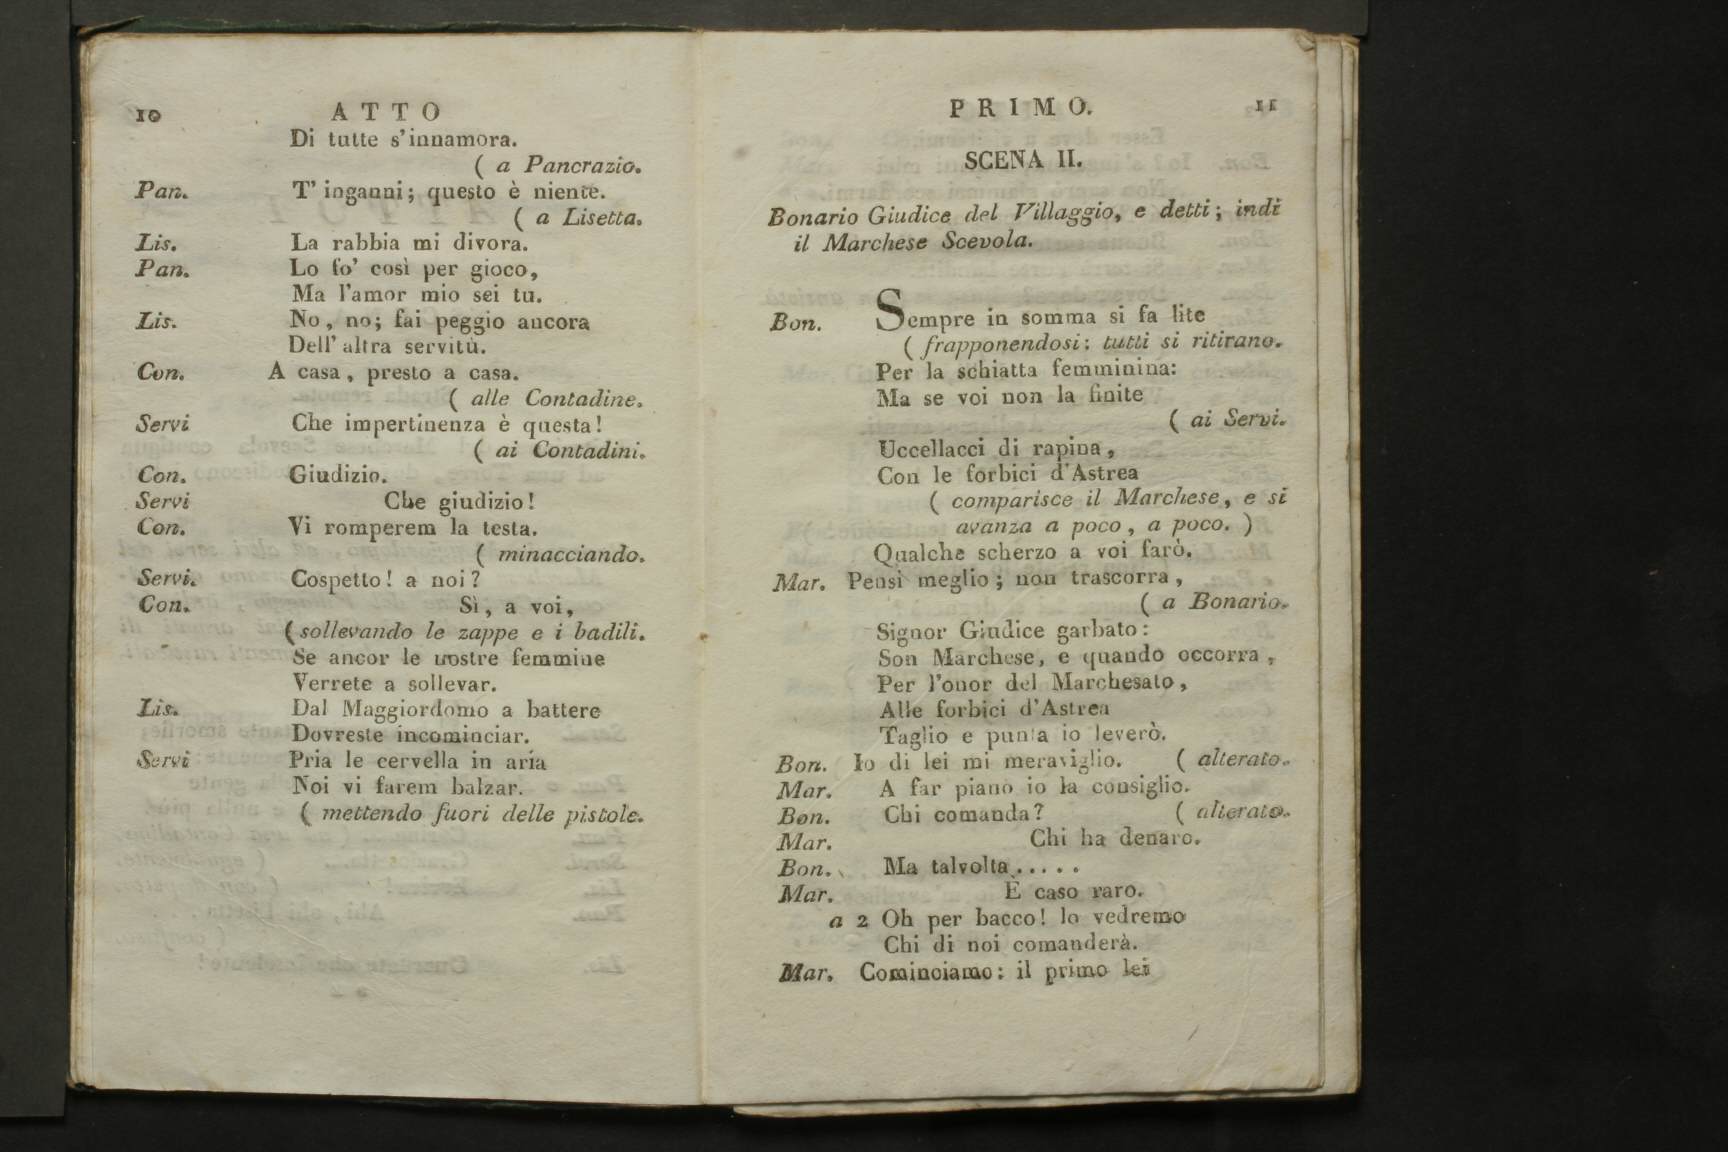 10 ATTO
Di tutte s'innamora.
( a Pancrazio.
Pan. T' inganni; questo è niente.
( a Lisetta.
Lis. La rabbia mi divora.
Pan. Lo fo' così per gioco,
Ma l'amor mio sei tu.
Lis. No, no; fai peggio ancora
Dell' altra servitù.
Con. A casa, presto a casa.
( alle Contadine.
Servi Che impertinenza è questa!
( ai Contadini.
Con. Giudizio.
Servi Che giudizio!
Con. Vi romperem la testa.
( minacciando.
Servi. Cospetto! a noi?
Con. Sì, a voi,
( sollevando le zappe e i badili.
Se ancor le nostre femmine
Verrete a sollevar.
Lis. Dal Maggiordomo a battere
Dovreste incominciar.
Servi Pria le cervella in aría
Noi vi farem balzar.
( mettendo fuori delle pistole.
PRIMO. 11
SCENA II.
Bonario Giudice del Villaggio, e detti; indi
il Marchese Scevola.
Bon. Sempre in somma si fa lite
( frapponendosi: tutti si ritirano.
Per la schiatta femminina:
Ma se voi non la finite
( ai Servi.
Uccellacci di rapina,
Con le forbici d'Astrea
( comparisce il Marchese, e si
avanza a poco, a poco. )
Qualche scherzo a voi farò.
Mar. Pensi meglio; non trascorra,
( a Bonario.
Signor Giudice garbato:
Son Marchese, e quando occorra,
Per l'onor del Marchesato,
Alle forbici d'Astrea
Taglio e punta io leverò.
Bon. Io di lei mi meraviglio. ( alterato.
Mar. A far piano io la consiglio.
Bon. Chi comanda? ( alterato.
Mar. Chi ha denaro.
Bon. Ma talvolta.....
Mar. È caso raro.
a 2 Oh per bacco! lo vedremo
Chi di noi comanderà.
Mar. Cominciamo: il primo lei